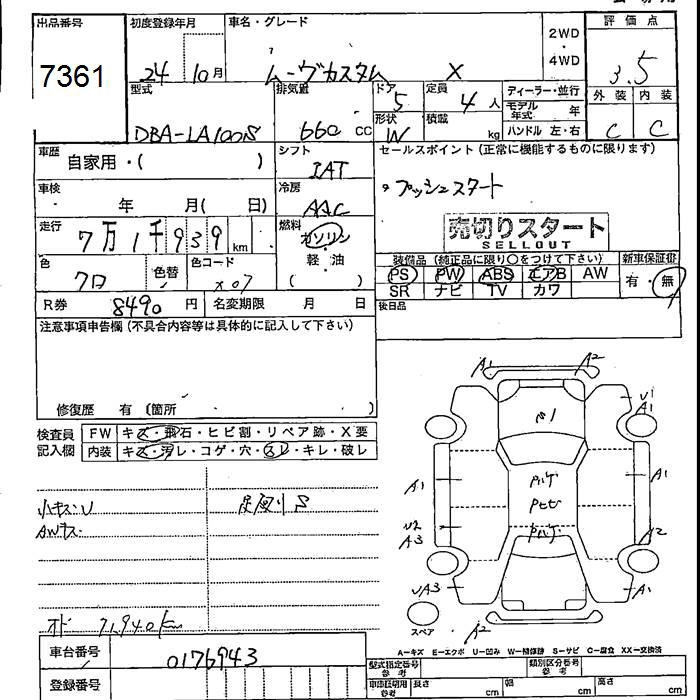 出品番号 初度登録年月 車名・グレード 評価点
7361 24年10月 ムーヴカスタム X 2WD・4WD 3.5
型式 排気量 ドア 定員 ディーラー・並行 外装 内装
DBA-LA100S 660cc 5 4人 モデル年式 年 C C
形状 W 積載 kg ハンドル 左・右
車歴 自家用・( ) シフト IAT セールスポイント(正常に機能するものに限ります)
車検 年 月( 日) 冷房 AAC ・プッシュスタート
走行 7万1千939km 燃料 ガソリン・軽・油 ( )
売切りスタート
SELLOUT
装備品(純正品に限り○をつけて下さい) 新車保証書
色 クロ 色替 色コード X07
PS PW ABS エアB AW 有・無
SR ナビ TV カワ
R券 8490円 名変期限 月 日 後日品
注意事項申告欄(不具合内容等は具体的に記入して下さい)
修復歴 有(箇所 )
検査員記入欄 FW キズ・飛石・ヒビ割・リペア跡・X要
内装 キズ・汚レ・コゲ・穴・スレ・キレ・破レ
小キズ・U 足廻りS
AWキズ・
オド 71,940km
車台番号 0176943
登録番号
A1 A2
U1
A1
A1 A1
U2
A3 A2
UA3 A1
スペア A2
A=キズ E=エクボ U=凹み W=補修跡 S=サビ C=腐食 XX=交換済
型式指定番号 参考 類別区分番号 参考
車庫証明用 参考 長さ cm 幅 cm 高さ cm